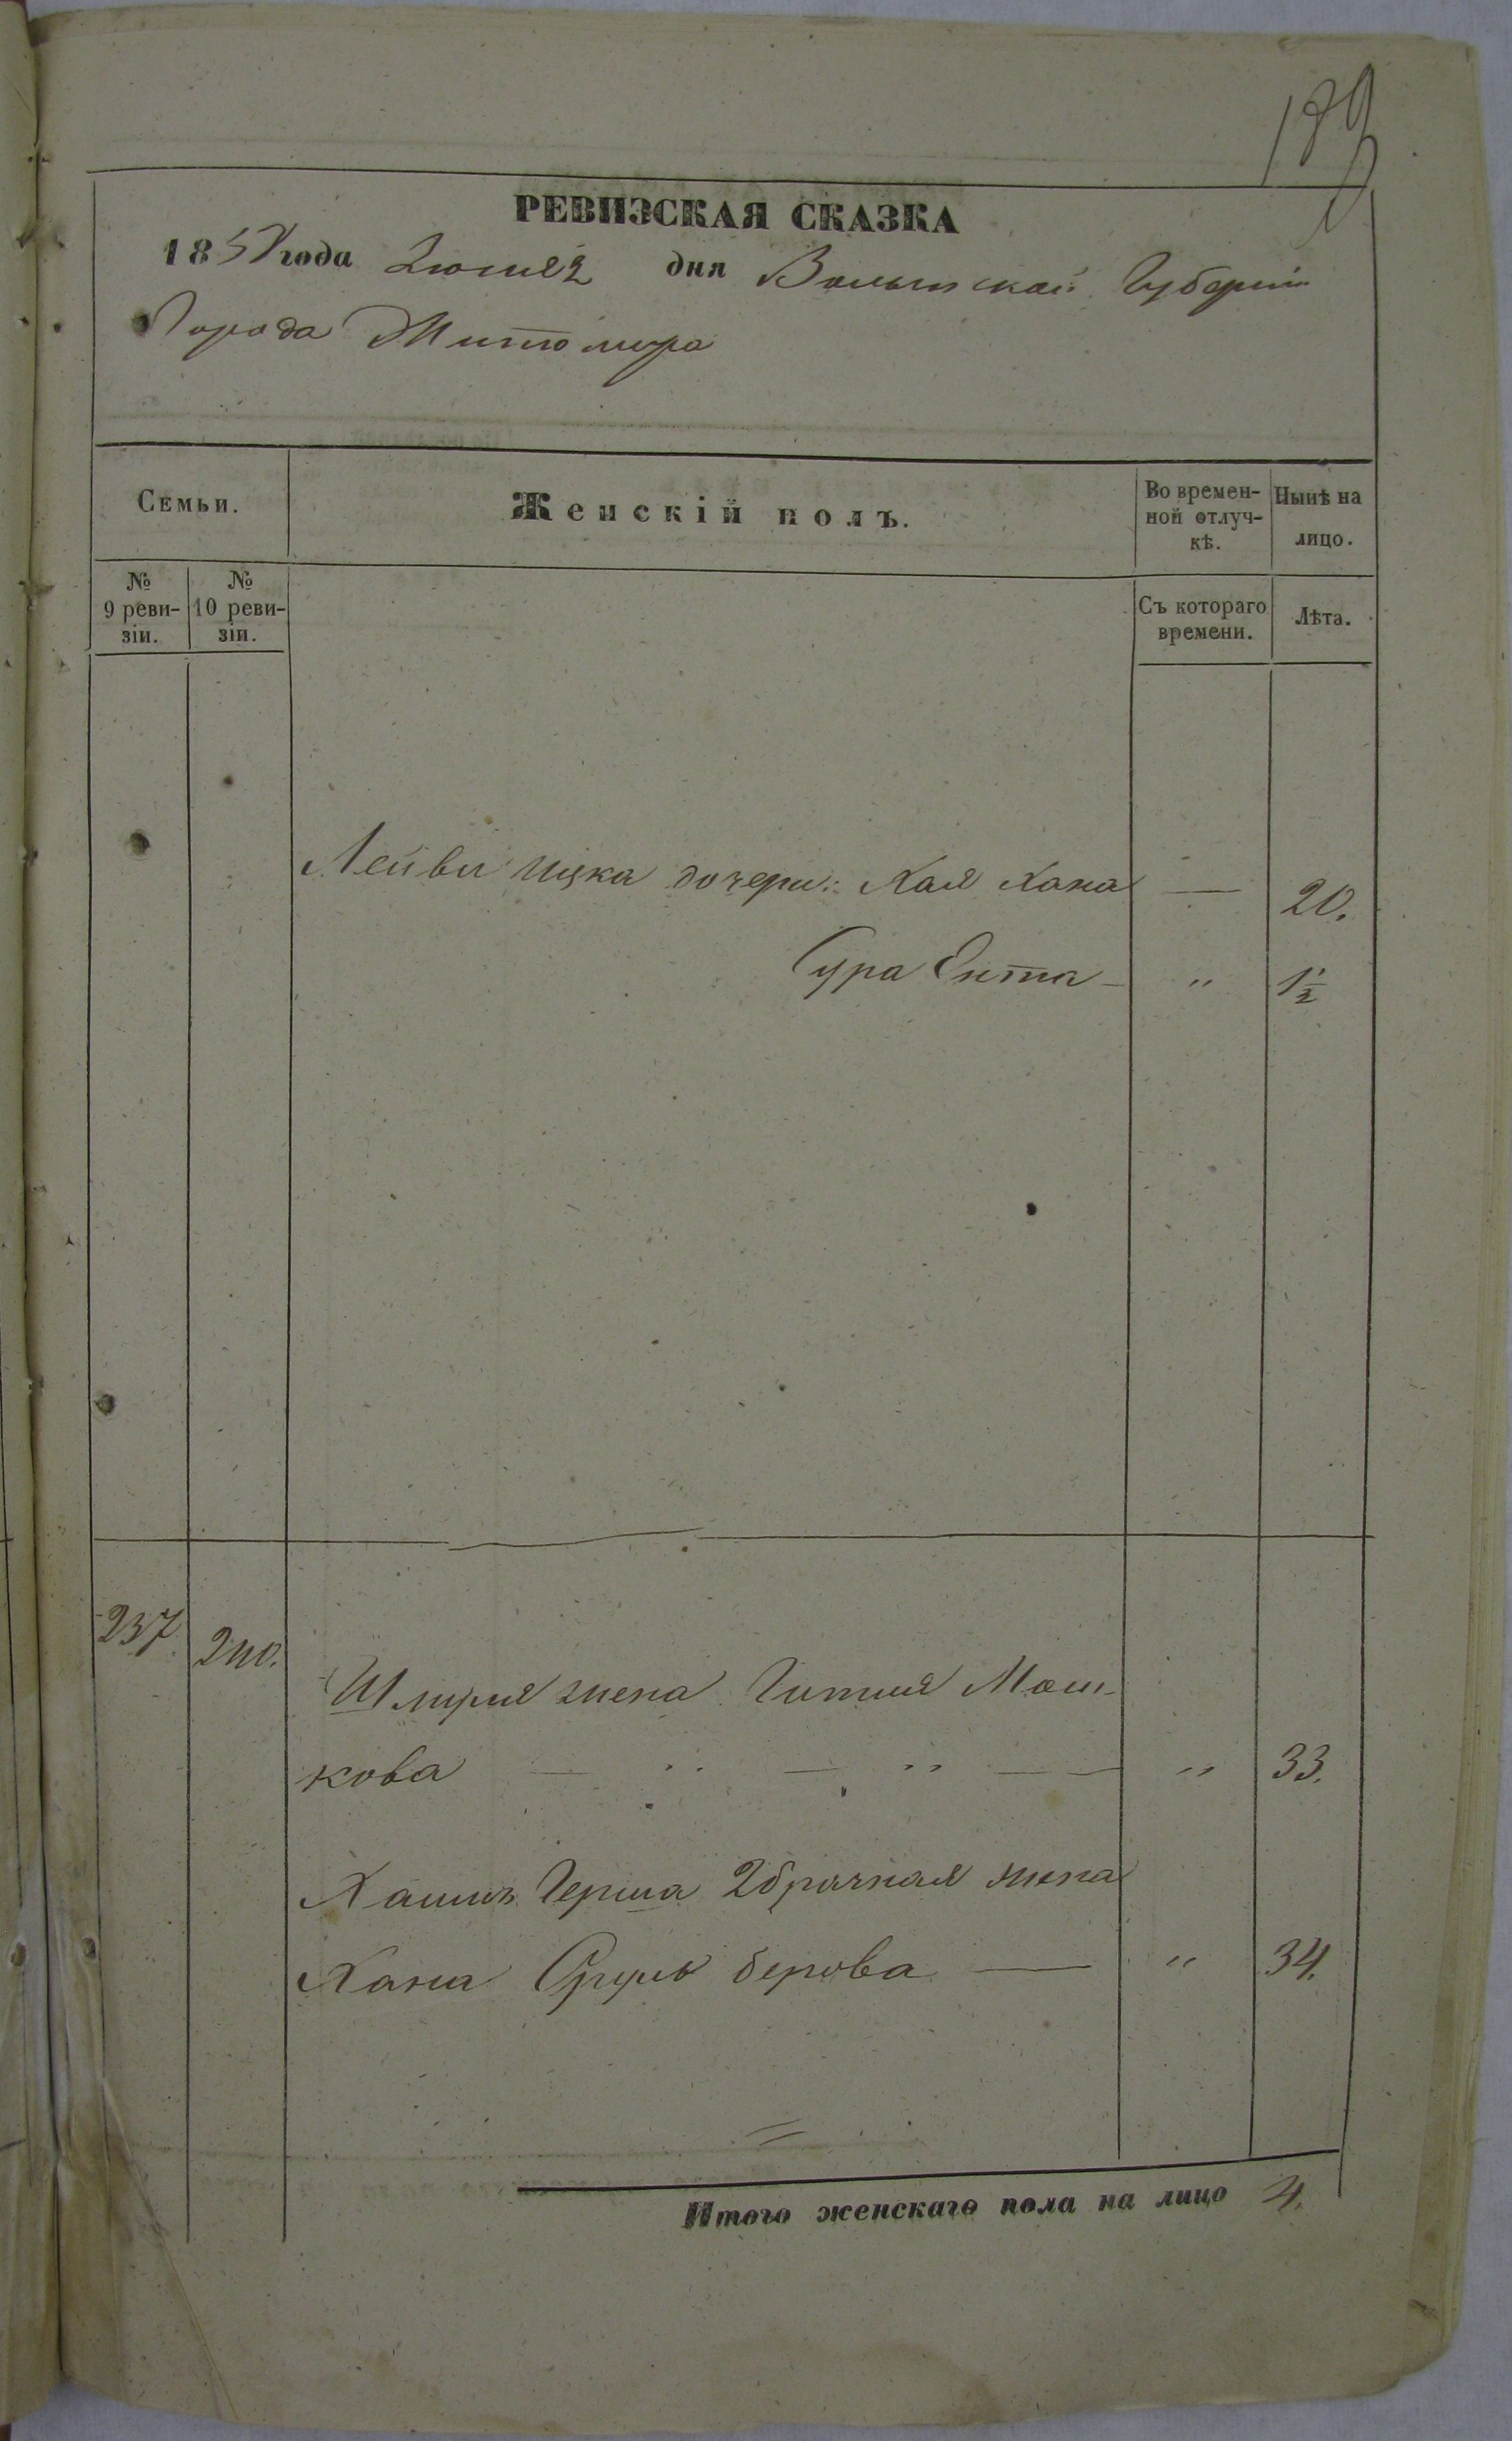 189
РЕВИЗСКАЯ СКАЗКА
1857 года Июня 2 дня Волынской Губернiи
Города Житомира
Семьи.
Женскiй полъ.
Во времен-
ной отлуч-
кѣ.
Нынѣ на
лицо.
№
9 реви-
зiи.
№
10 реви-
зiи.
Съ котораго
времени.
Лѣта.
Лейви Ицка дочери: Хая Хана — 20.
Сура Ента — " 1½
237. 240.
Шмуля жена Гитля Мош-
кова — " — " — — " 33.
Хаимъ Герша 2 брачная жена
Хана Сруль берова — " 34.
Итого женскаго пола на лицо 4.